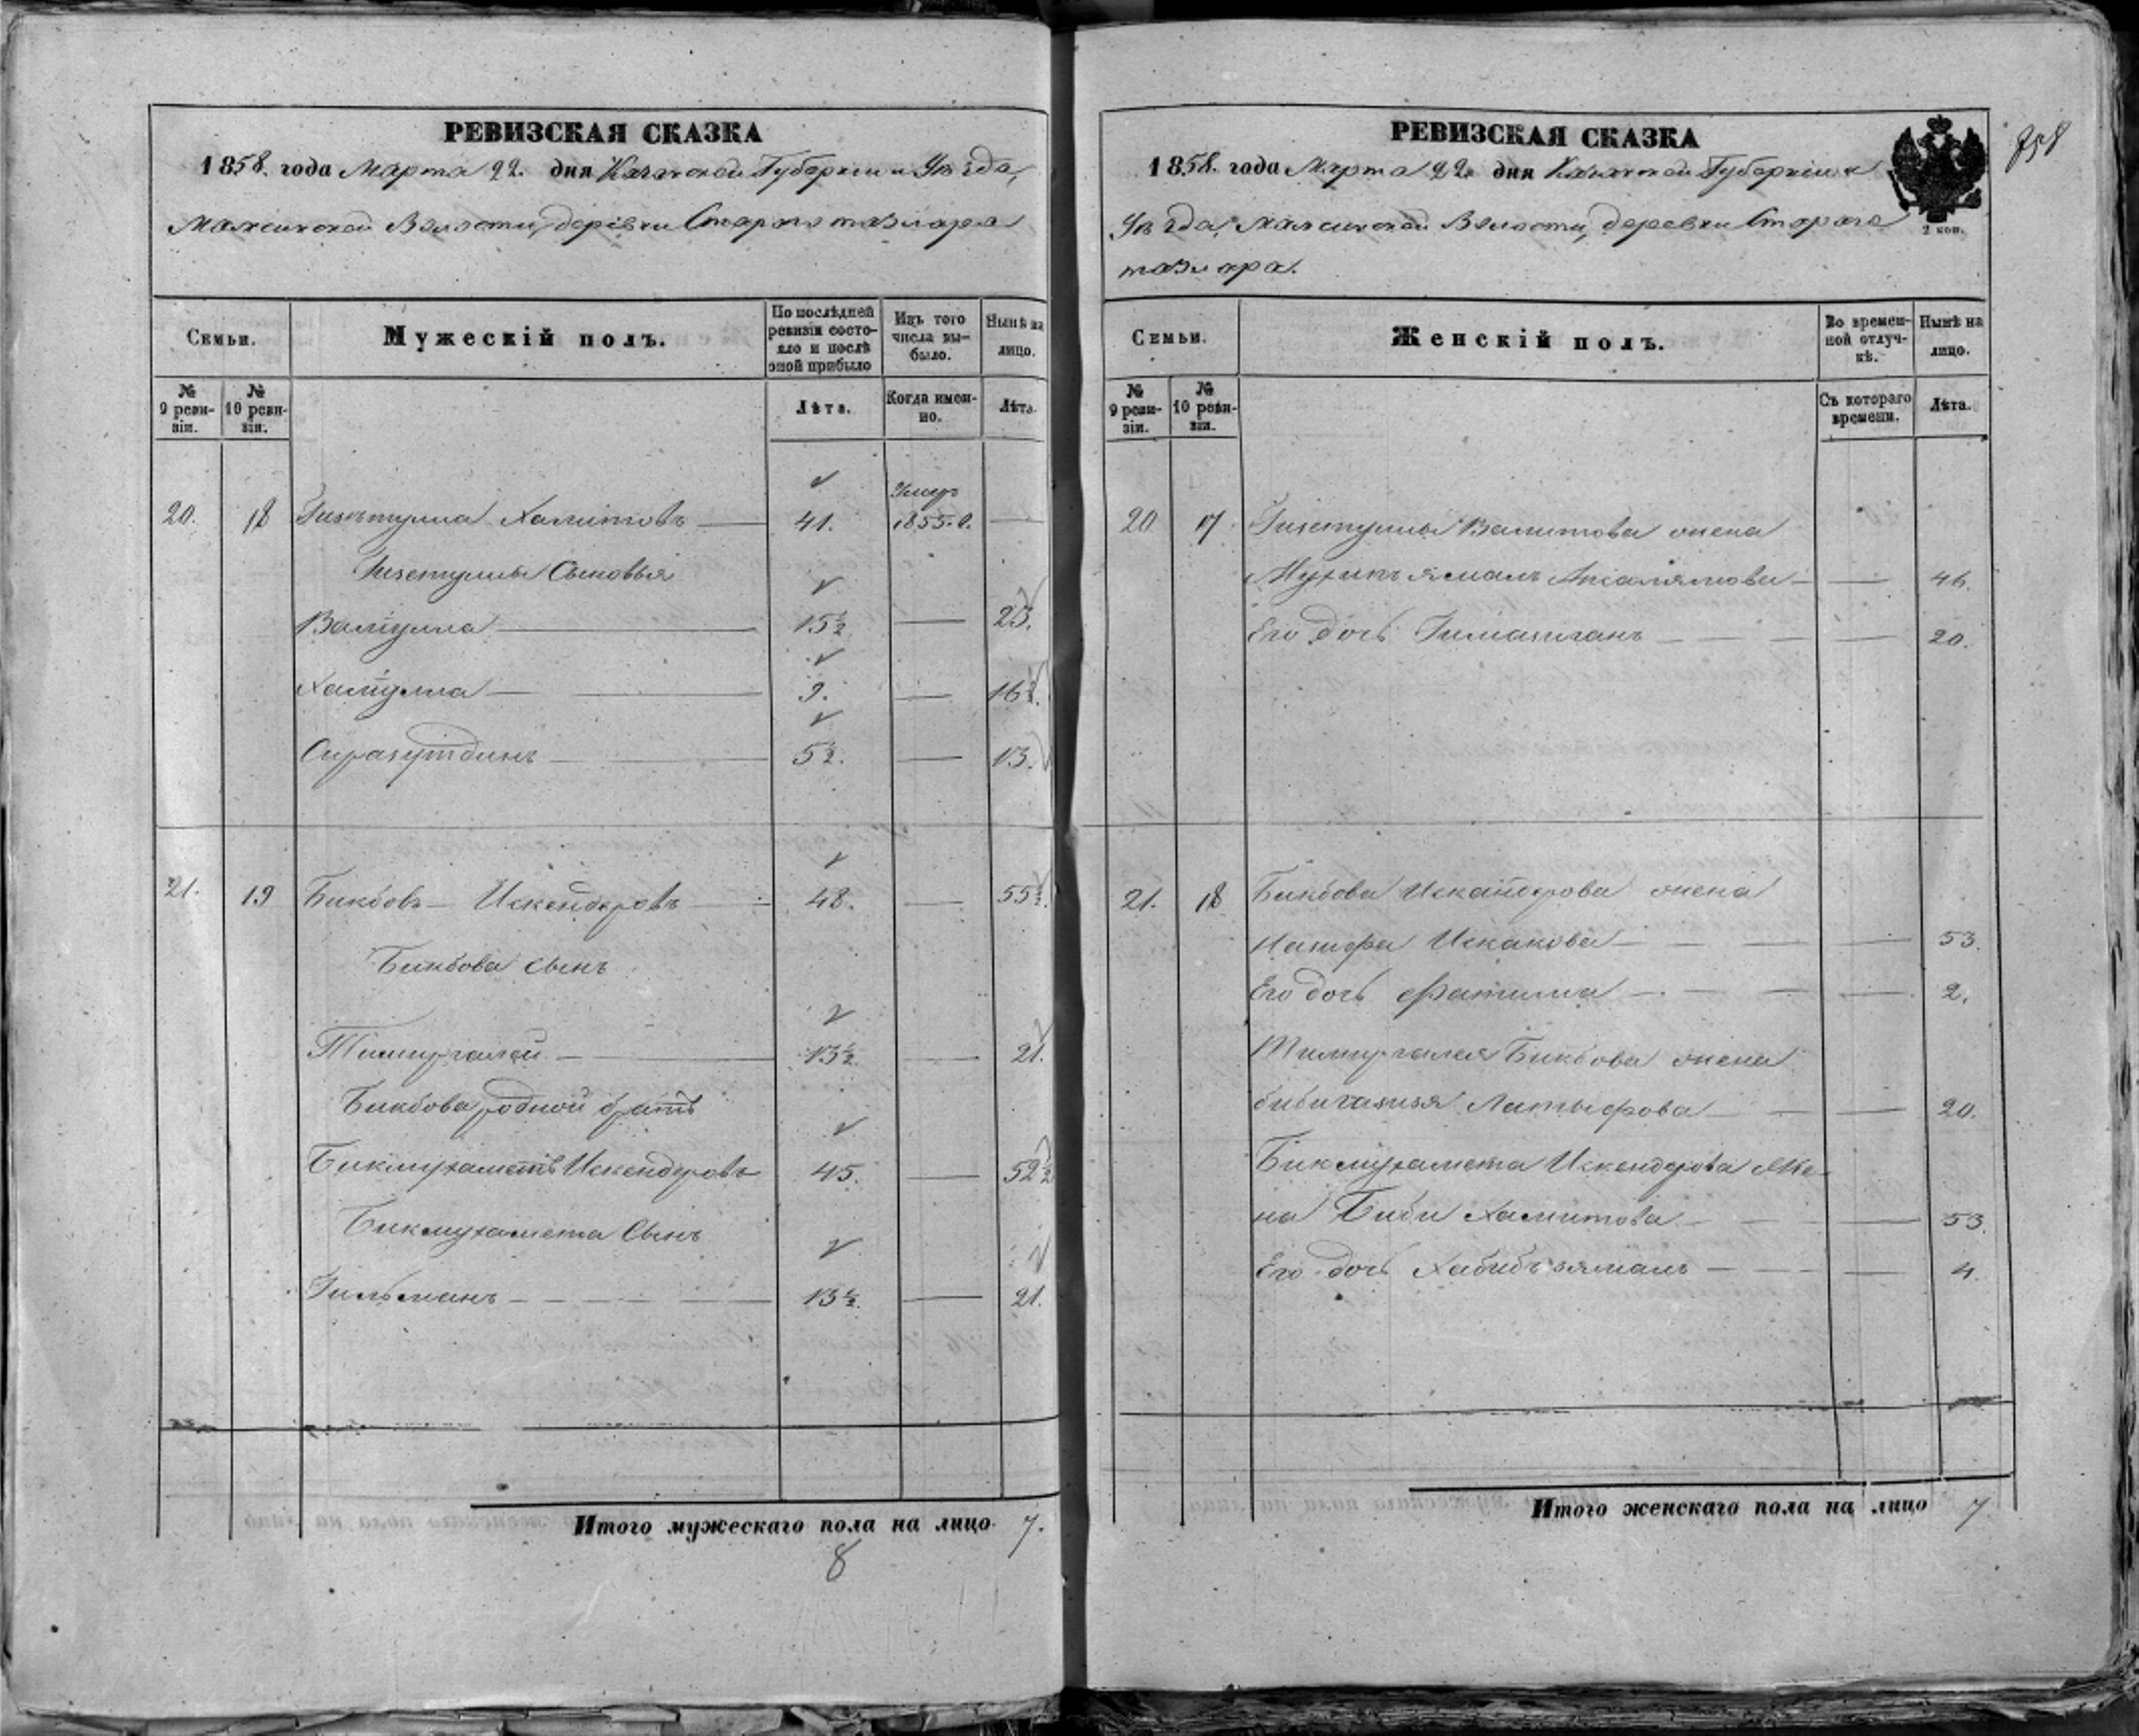 РЕВИЗСКАЯ СКАЗКА
1858. года Марта 22. дня Казанской Губернии и Уѣзда,
Волости, деревни Старого
Семьи.
Мужескій полъ.
По послѣдней ревизіи состояло и послѣ оной прибыло
Изъ того числа выбыло.
Нынѣ на лицо.
№ 9 ревизіи.
№ 10 ревизіи.
Лѣта.
Когда именно.
Лѣта.
20. 18 41. Умеръ 1855. г.
Сыновья
Валиулла 15½ 23.
Халиулла 9. 16½.
Сиразутдинъ 5½. 13.
21. 19 Бикбовъ Искендеровъ 48. 55½.
Бикбова сынъ
Тимиргалей 13½ 21.
Бикбова родной братъ
Бикмухаметъ Искендеровъ 45. 52½
Бикмухамета Сынъ
Гильманъ 13½. 21.
Итого мужескаго пола на лицо 7.
8
РЕВИЗСКАЯ СКАЗКА
1858. года Марта 22 дня Казанской Губерніи и
Уѣзда, Волости, деревни Старого
2 коп.
758
Семьи.
Женскій полъ.
Во временной отлучкѣ.
Нынѣ на лицо.
№ 9 ревизіи.
№ 10 ревизіи.
Съ котораго времени.
Лѣта.
20 17 жена
46.
Его дочь 20.
21. 18 Бикбова Искандерова жена
Искакова 53.
Его дочь Фатима 2.
Тимиргалея Бикбова жена
Латыфова 20.
Бикмухамета Искендерова Же-
на Биби Хамитова 53.
Его дочь Хабибъзямалъ 4.
Итого женскаго пола на лицо 7